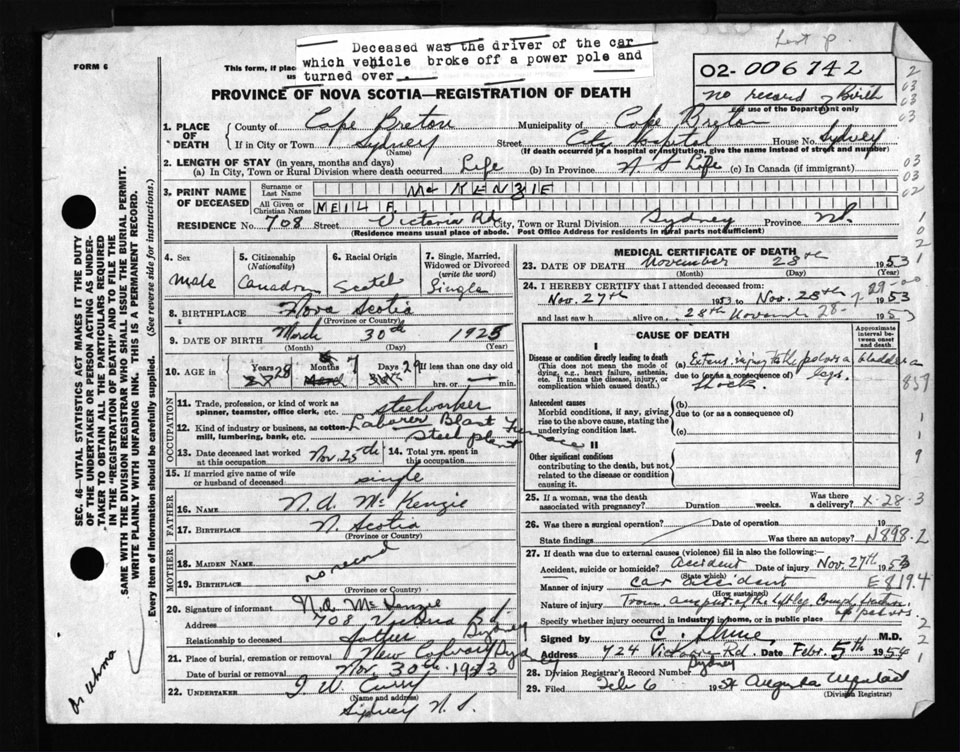 Deceased was the driver of the car
which vehicle broke off a power pole and
turned over
FORM 6
This form, if plac
us
02-006742
no record of Birth
For use of the Department only
PROVINCE OF NOVA SCOTIA—REGISTRATION OF DEATH
1. PLACE OF DEATH
County of Cape Breton Municipality of Cape Breton
If in City or Town Sydney (Name) Street City Hospital House No. Sydney
(If death occurred in a hospital or institution, give the name instead of street and number)
2. LENGTH OF STAY (in years, months and days)
(a) In City, Town or Rural Division where death occurred Life (b) In Province N S Life (c) In Canada (if immigrant)
3. PRINT NAME OF DECEASED
Surname or Last Name McKENZIE
All Given or Christian Names
RESIDENCE No. 708 Street Victoria Rd City, Town or Rural Division Sydney Province NS.
(Residence means usual place of abode. Post Office Address for residents in rural parts not sufficient)
4. Sex
Male
5. Citizenship (Nationality)
Canadian
6. Racial Origin
Scotch
7. Single, Married, Widowed or Divorced (write the word)
Single
8. BIRTHPLACE Nova Scotia
(Province or Country)
9. DATE OF BIRTH March 30th 1925
(Month) (Day) (Year)
10. AGE in Years 28 Months 7 Days 29 If less than one day old
hrs. or min.
OCCUPATION
11. Trade, profession, or kind of work as spinner, teamster, office clerk, etc. Steelworker
12. Kind of industry or business, as cotton-mill, lumbering, bank, etc. Laborer Blast Furnace
Steel plant
13. Date deceased last worked at this occupation Nov. 25th 14. Total yrs. spent in this occupation
15. If married give name of wife or husband of deceased single
FATHER
16. NAME N. A. McKenzie
17. BIRTHPLACE N. Scotia
(Province or Country)
MOTHER
18. MAIDEN NAME
no record
19. BIRTHPLACE
(Province or Country)
20. Signature of informant N. A. McKenzie
Address 708 Victoria Rd Sydney
Relationship to deceased father
21. Place of burial, cremation or removal New Calvary Sydney
Date of burial or removal Nov. 30th 1953
22. UNDERTAKER T W Curry
(Name and address)
Sydney N. S.
MEDICAL CERTIFICATE OF DEATH
23. DATE OF DEATH November 28th 1953
(Month) (Day) (Year)
24. I HEREBY CERTIFY that I attended deceased from:
Nov. 27th 1953 to Nov. 28th 1953
and last saw h alive on 28th November 28- 1953
CAUSE OF DEATH
Approximate interval between onset and death
I
Disease or condition directly leading to death
(This does not mean the mode of dying, e.g. heart failure, asthenia, etc. It means the disease, injury, or complication which caused death.)
(a) Extens. injury to the pelvis & bladder
due to (or as a consequence of)
Shock.
Antecedent causes
Morbid conditions, if any, giving rise to the above cause, stating the underlying condition last.
(b)
due to (or as a consequence of)
(c)
II
Other significant conditions
contributing to the death, but not related to the disease or condition causing it
25. If a woman, was the death associated with pregnancy? Duration weeks. Was there a delivery? X-28-3
26. Was there a surgical operation? Date of operation 19
State findings Was there an autopsy? N898.2
27. If death was due to external causes (violence) fill in also the following:—
Accident, suicide or homicide? Accident Date of injury Nov. 27th 1953
(State which)
Manner of injury Car accident E 819.4
(How sustained)
Nature of injury Traum. amput. of the left leg Comp. fracture of pelvis
Specify whether injury occurred in industry, in home, or in public place
Signed by M.D.
Address 424 Victoria Rd. Sydney Date Febr. 5th 1954
28. Division Registrar's Record Number
29. Filed Feb 6 1954
(Division Registrar)
SEC. 46—VITAL STATISTICS ACT MAKES IT THE DUTY
OF THE UNDERTAKER OR PERSON ACTING AS UNDER-
TAKER TO OBTAIN ALL THE PARTICULARS REQUIRED
IN THE "REGISTRATION OF DEATH" AND TO FILE THE
SAME WITH THE DIVISION REGISTRAR WHO SHALL ISSUE THE BURIAL PERMIT.
WRITE PLAINLY WITH UNFADING INK. THIS IS A PERMANENT RECORD.
Every item of information should be carefully supplied. (See reverse side for instructions.)